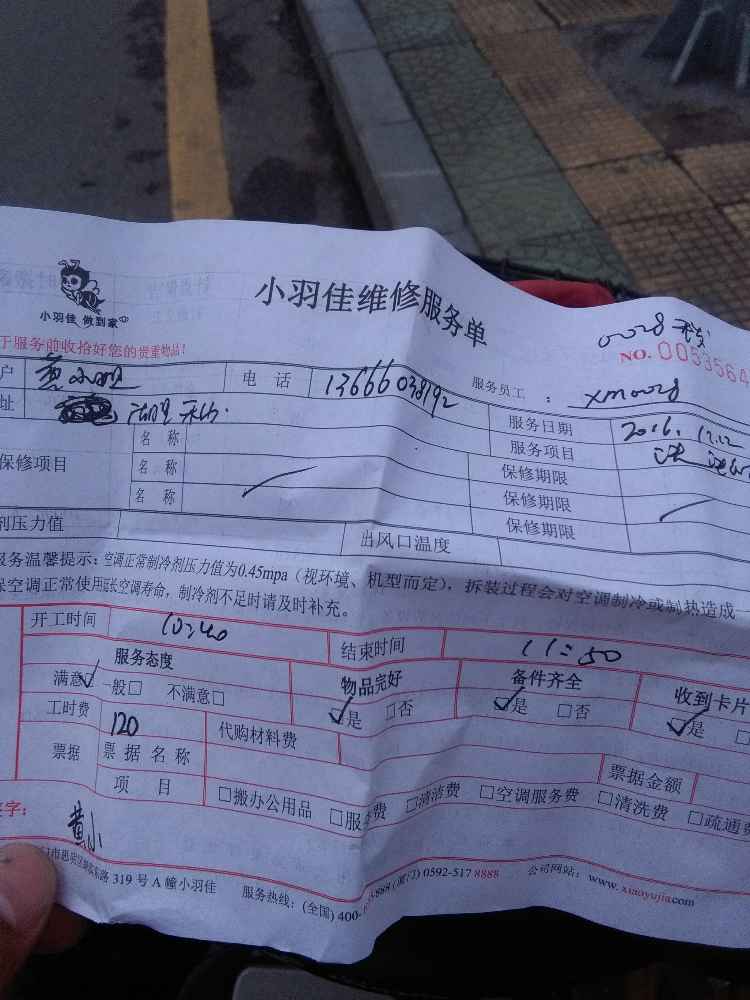 小羽佳 做到家
小羽佳维修服务单
0028
NO. 0053564
于服务前收拾好您的贵重物品!
户
电 话 13666038192
服务员工 : xm0028
址
服务日期 2016.12.12
服务项目
保修项目
名 称
名 称
名 称
保修期限
保修期限
保修期限
剂压力值
出风口温度
服务温馨提示: 空调正常制冷剂压力值为0.45mpa(视环境、机型而定),拆装过程会对空调制冷或制热造成一
保空调正常使用延长空调寿命,制冷剂不足时请及时补充。
开工时间 10:40
结束时间 11:50
服务态度 物品完好 备件齐全 收到卡片
满意☑ 一般□ 不满意□ ☑是 □否 ☑是 □否 ☑是 □
工时费 120 代购材料费
票据 票 据 名 称 票据金额
项 目 □搬办公用品 □服务费 □清洁费 □空调服务费 □清洗费 □疏通费
签字: 黄小
319 号 A 幢小羽佳 服务热线: (全国) 400- -888 (厦门) 0592-517 8888 公司网站: www. xiaoyujia.com